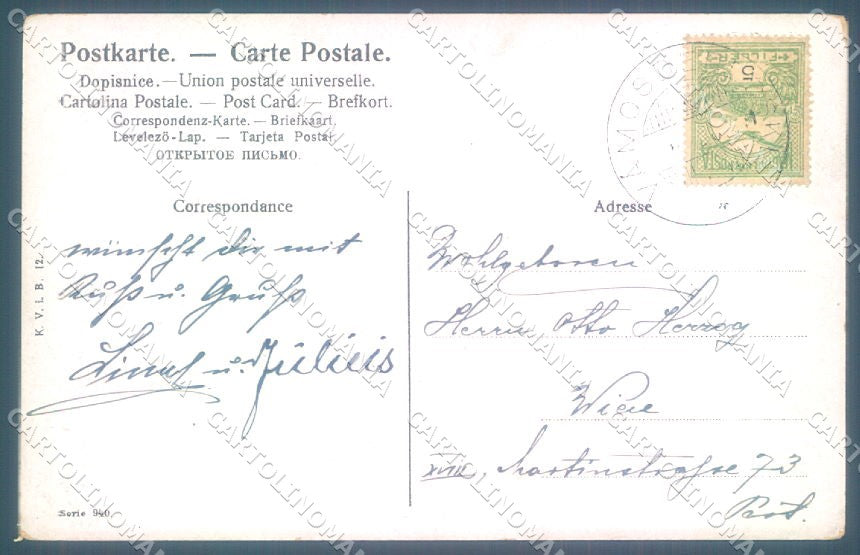 Postkarte. — Carte Postale.
Dopisnice. — Union postale universelle.
Cartolina Postale. — Post Card. — Brefkort.
Correspondenz-Karte. — Briefkaart.
Levelező-Lap. — Tarjeta Postal
ОТКРЫТОЕ ПИСЬМО.
Correspondance
wünscht dir mit
Kuß u. Gruß
u.
K. V. i. B. 12.
Serie 940
Adresse
Wohlgeboren
Herrn Otto Herzog
Wien
XVIII, Martinstrasse 73
FILLER
5
VÁMOS
CARTOLINOMANIA